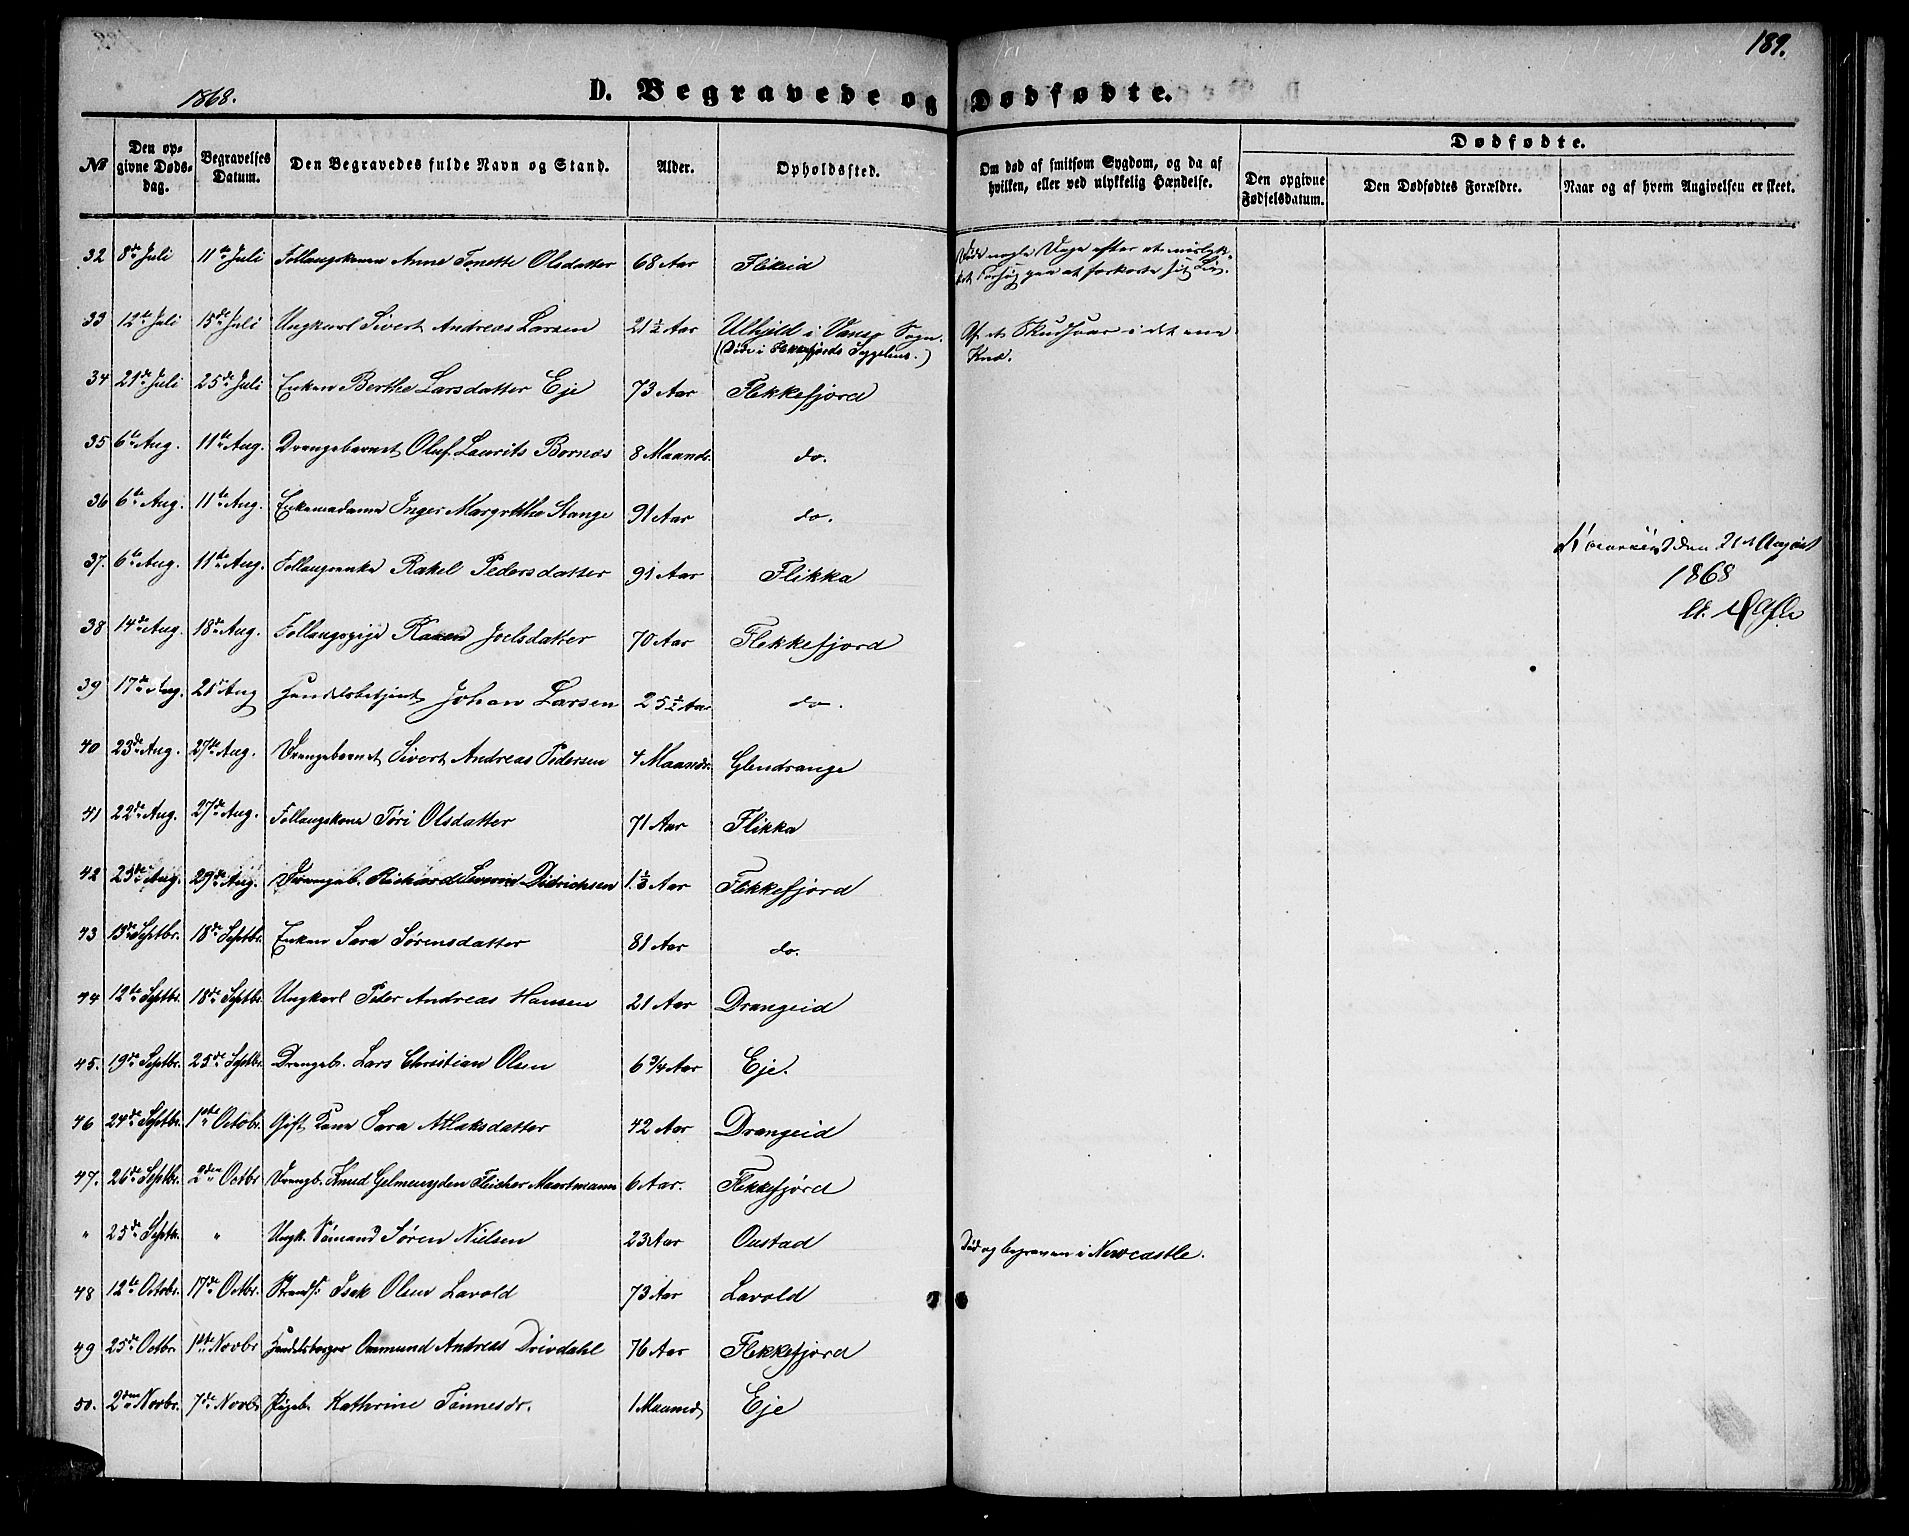 189.
1868.
D. Begravede og Dødfødte.
No
Den opgivne Dødsdag.
Begravelses Datum.
Den Begravedes fulde Navn og Stand.
Alder.
Opholdssted.
Om død af smitsom Sygdom, og da af hvilken, eller ved ulykkelig Hændelse.
Dødfødte.
Den opgivne Fødselsdatum.
Den Dødfødtes Forældre.
Naar og af hvem Angivelsen er skeet.
32 8de Juli 11te Juli Follaugskone Anne Tonette Olsdatter 68 Aar Flikeid Døde nogle Dage efter et mislyk-
ket Forsøg paa at forkorte sit Liv.
33 12te Juli 15de Juli Ungkarl Sivert Andreas Larsen 21½ Aar Ulhjeld i Vanse Sogn. Af et Skudsaar i det ene
(Døde i Flekkefjords Sygehus.) Knæ.
34 21de Juli 25de Juli Enken Berthe Larsdatter Eje 73 Aar Flekkefjord
35 6te Aug. 11te Aug. Drengebarnet Oluf Laurits Bornæs 8 Maaneds. do.
36 6te Aug. 11te Aug. Enkemadame Inger Margrethe Stange 91 Aar do.
37. 6te Aug. 11te Aug. Follaugsenke Rakel Pedersdatter 91 Aar Flikka
den 21de August
1868
38 14de Aug. 18de Aug. Follaugspige Karen Joelsdatter 70 Aar Flekkefjord
39 17de Aug. 21de Aug Handelsbetjent Johan Larsen 25½ Aar do.
40 23de Aug. 27de Aug. Drengebarnet Sivert Andreas Pedersen 4 Maaneder Glendrange
41 22de Aug. 27de Aug. Follaugskone Tøri Olsdatter 71 Aar Flikka
42 23de Aug. 29de Aug. Drengeb. Richard Severin Didrichsen 1⅓ Aar Flekkefjord
43 13de Septbr. 18de Septbr. Enken Sara Sørensdatter 81 Aar do.
44 12te Septbr. 18de Septbr. Ungkarl Peter Andreas Hansen 21 Aar Drangeid
45. 19de Septbr. 25de Septbr. Drengeb. Lars Christian Olsen 6 3/4 Aar Eje.
46 24de Septbr. 1ste Octobr. Gift Kone Sara Atlaksdatter 42 Aar Drangeid
47. 26de Septbr. 2den Octbr. Drengb. Knud Gelmeyden Fleischer Maartmann 6 Aar. Flekkefjord
" 25de Septbr. " Ungk. Sømand Søren Nielsen 23 Aar Oustad Død og begraven i Newcastle.
48 12te Octobr. 17de Octbr. Strands. Isak Olsen Lavold 73 Aar Lavold
49 25de Octbr. 1ste Novbr. Handelsborger Osmund Andreas Drivdahl 76 Aar Flekkefjord
50. 2den Novbr. 7de Novbr Pigeb. Kathrine Tønnesdr. 1 Maaned Eje